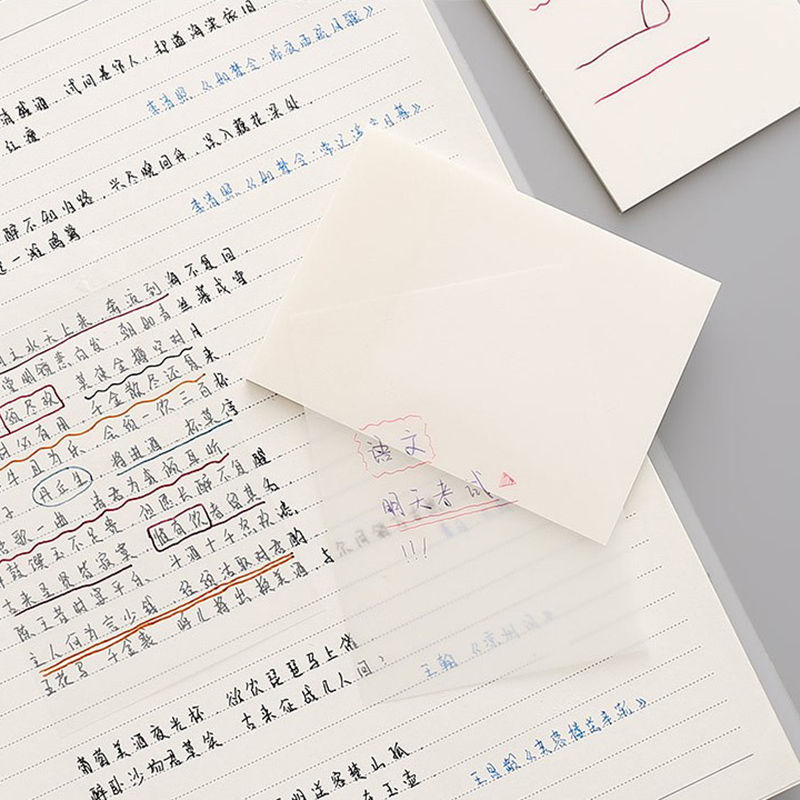 消残酒,试问卷帘人,却道海棠依旧
红瘦。
李清照《如梦令·昨夜雨疏风骤》
醉不知归路,兴尽晚回舟,误入藕花深处.
一滩鸥鹭.
李清照《如梦令·常记溪亭日暮》
之水天上来,奔流到海不复回
堂明镜悲白发,朝如青丝暮成雪
须尽欢 莫使金樽空对月
材必有用 千金散尽还复来
牛且为乐 会须一饮三百杯
丹丘生 将进酒 杯莫停
歌一曲 请君为我倾耳听
鼓馔玉不足贵 但愿长醉不复醒
古来圣贤皆寂寞 惟有饮者留其名
陈王昔时宴平乐 斗酒十千恣欢谑
主人何为言少钱 径须沽取对君酌
五花马 千金裘 呼儿将出换美酒,与
语文
明天考试
!!!
王翰《凉州词》
葡萄美酒夜光杯 欲饮琵琶马上催
醉卧沙场君莫笑 古来征战几人回?
明送客楚山孤
在玉壶
王昌龄《芙蓉楼送辛渐》